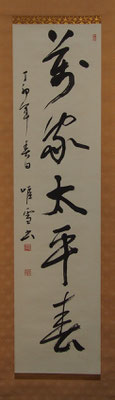 萬家太平春
丁卯年春日 唯雪書